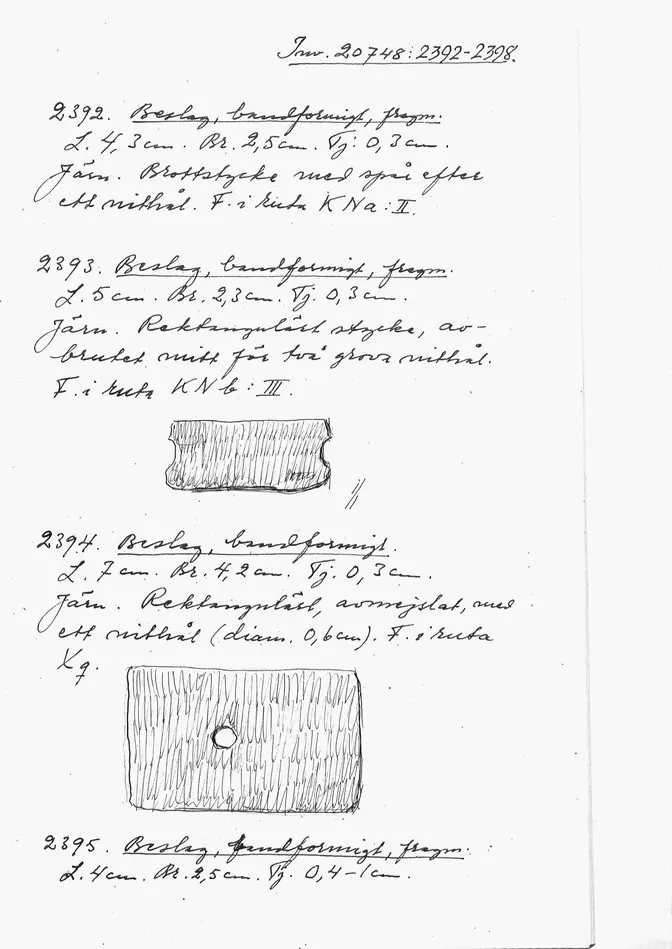 Inv. 20748:2392-2398.
2392. Beslag, bandformigt, fragm.
L. 4,3cm. Br. 2,5cm. Tj. 0,3cm.
Järn. Brottstycke med spår efter
ett nithål. F. i ruta KNa:II.
2393. Beslag, bandformigt, fragm.
L. 5cm. Br. 2,3cm. Tj. 0,3cm.
Järn. Rektangulärt stycke, av-
brutet mitt för två grova nithål.
F. i ruta KNb:III.
2394. Beslag, bandformigt.
L. 7cm. Br. 4,2cm. Tj. 0,3cm.
Järn. Rektangulärt, avmejslat, med
ett nithål (diam. 0,6cm). F. i ruta
Xq.
2395. Beslag, bandformigt, fragm.
L. 4cm. Br. 2,5cm. Tj. 0,4-1cm.